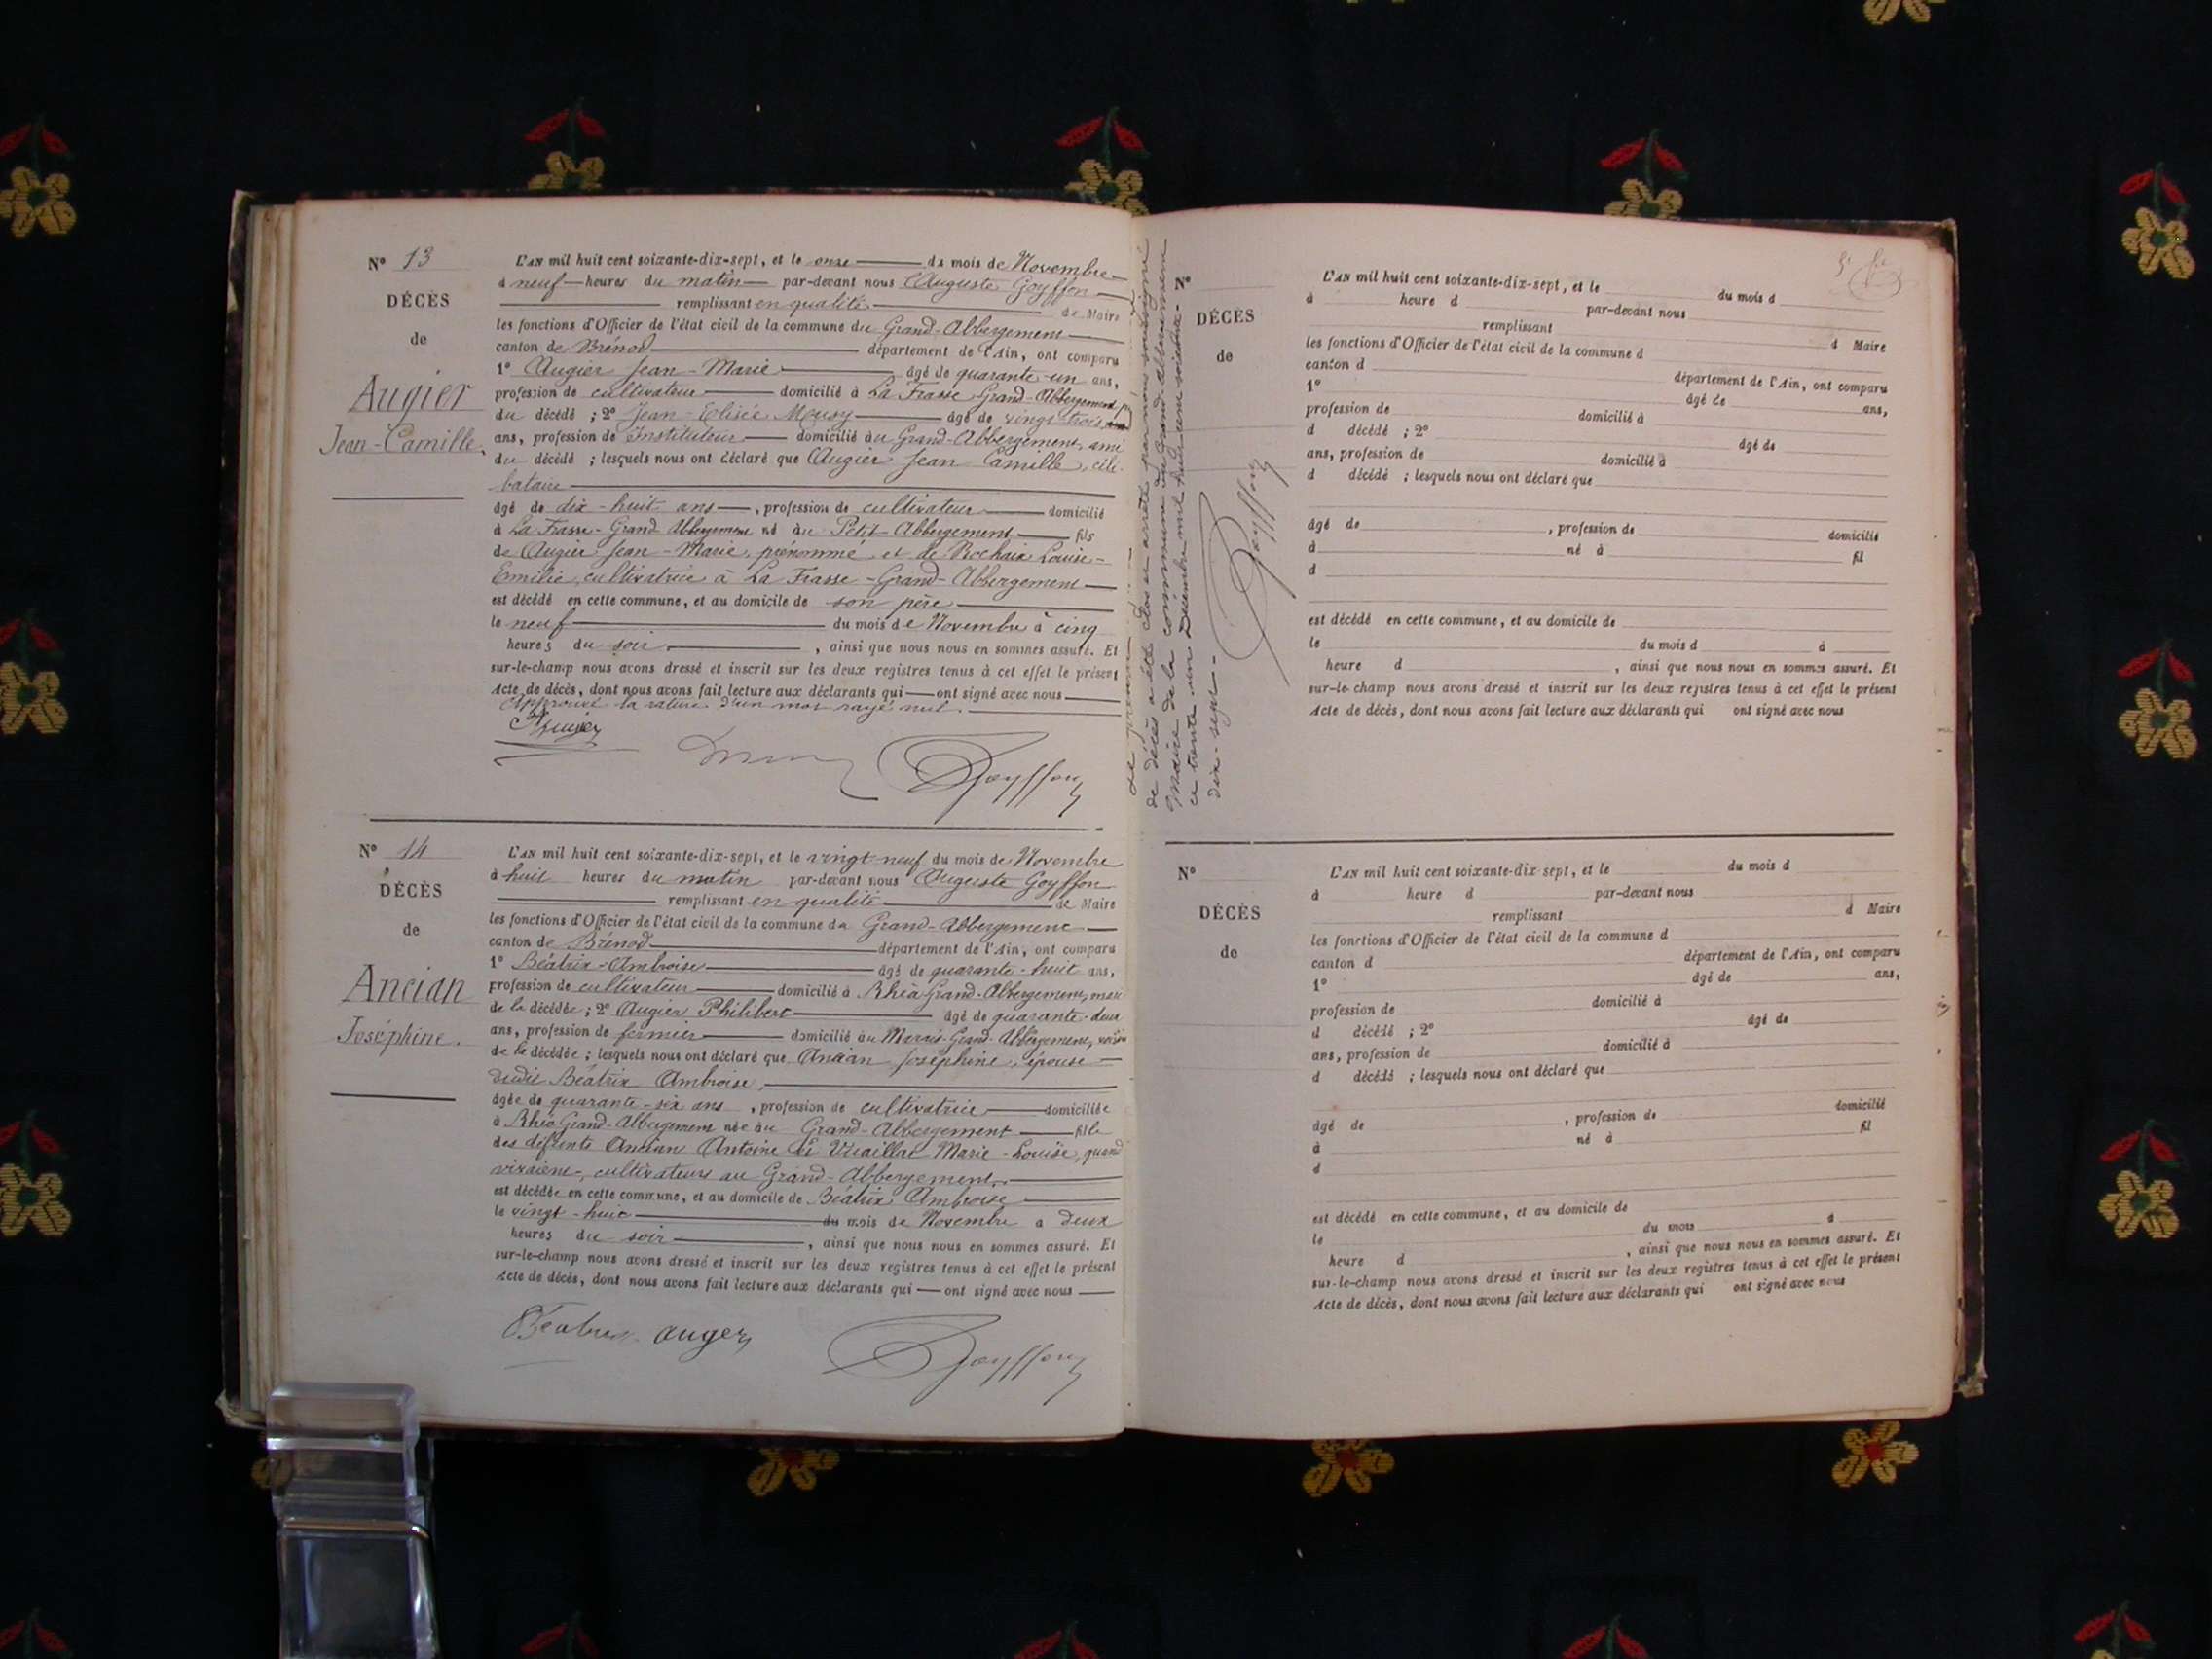 N° 13
DÉCÈS
de
Augier
Jean-Camille.
L'AN mil huit cent soixante-dix-sept, et le onze du mois de Novembre
à neuf heures du matin par-devant nous Auguste Goyffon
remplissant en qualité de Maire
les fonctions d'Officier de l'état civil de la commune du Grand-Abbergement
canton de Brénod département de l'Ain, ont comparu
1° Augier Jean-Marie âgé de quarante-un ans,
profession de cultivateur domicilié à La Frasse Grand-Abbergement
du décédé ; 2° Jean-Elisée âgé de vingt-trois
ans, profession de Instituteur domicilié au Grand-Abbergement, ami
du décédé ; lesquels nous ont déclaré que Augier Jean Camille, céli-
bataire
âgé de dix-huit ans, profession de cultivateur domicilié
à La Frasse-Grand Abbergement né au Petit-Abbergement fils
de Augier Jean-Marie, prénommé, et de Rochaix Louise-
Emilie, cultivatrice à La Frasse-Grand-Abbergement
est décédé en cette commune, et au domicile de son père
le neuf du mois de Novembre à cinq
heures du soir, ainsi que nous nous en sommes assuré. Et
sur-le-champ nous avons dressé et inscrit sur les deux registres tenus à cet effet le présent
Acte de décès, dont nous avons fait lecture aux déclarants qui ont signé avec nous
Approuvé la rature d'un mot rayé nul.
Augier
Goyffon
N° 14
DÉCÈS
de
Ancian
Joséphine.
L'AN mil huit cent soixante-dix-sept, et le vingt-neuf du mois de Novembre
à huit heures du matin par-devant nous Auguste Goyffon
remplissant en qualité de Maire
les fonctions d'Officier de l'état civil de la commune du Grand-Abbergement
canton de Brénod département de l'Ain, ont comparu
1° Béatrix-Ambroise âgé de quarante-huit ans,
profession de cultivateur domicilié à Rhéa Grand-Abbergement, mari
de la décédée ; 2° Augier Philibert âgé de quarante-deux
ans, profession de fermier domicilié au Marais-Grand-Abbergement, voisin
de la décédée ; lesquels nous ont déclaré que Ancian Joséphine, épouse
dudit Béatrix Ambroise,
âgée de quarante-six ans, profession de cultivatrice domiciliée
à Rhéa Grand-Abbergement née au Grand-Abbergement fille
des défunts Ancian Antoine et Marie-Louise, quand
vivaient, cultivateurs au Grand-Abbergement,
est décédée en cette commune, et au domicile de Béatrix Ambroise
le vingt-huit du mois de Novembre à deux
heures du soir, ainsi que nous nous en sommes assuré. Et
sur-le-champ nous avons dressé et inscrit sur les deux registres tenus à cet effet le présent
Acte de décès, dont nous avons fait lecture aux déclarants qui ont signé avec nous
Béatrix auger
Goyffon
Le présent
de décès a été clos et arrêté par nous soussigné
Maire de la commune du Grand-Abbergement
ce trente un Décembre mil huit cent soixante-
dix-sept
Goyffon
N°
DÉCÈS
de
L'AN mil huit cent soixante-dix-sept, et le du mois d
à heure d par-devant nous
remplissant d Maire
les fonctions d'Officier de l'état civil de la commune d
canton d département de l'Ain, ont comparu
1° âgé de ans,
profession de domicilié à
d décédé ; 2° âgé de
ans, profession de domicilié à
d décédé ; lesquels nous ont déclaré que
âgé de , profession de domicilié
à né à fil
d
est décédé en cette commune, et au domicile de
le du mois d à
heure d , ainsi que nous nous en sommes assuré. Et
sur-le-champ nous avons dressé et inscrit sur les deux registres tenus à cet effet le présent
Acte de décès, dont nous avons fait lecture aux déclarants qui ont signé avec nous
N°
DÉCÈS
de
L'AN mil huit cent soixante-dix-sept, et le du mois d
à heure d par-devant nous
remplissant d Maire
les fonctions d'Officier de l'état civil de la commune d
canton d département de l'Ain, ont comparu
1° âgé de ans,
profession de domicilié à
d décédé ; 2° âgé de
ans, profession de domicilié à
d décédé ; lesquels nous ont déclaré que
âgé de , profession de domicilié
à né à fil
d
est décédé en cette commune, et au domicile de
le du mois à
heure d , ainsi que nous nous en sommes assuré. Et
sur-le-champ nous avons dressé et inscrit sur les deux registres tenus à cet effet le présent
Acte de décès, dont nous avons fait lecture aux déclarants qui ont signé avec nous